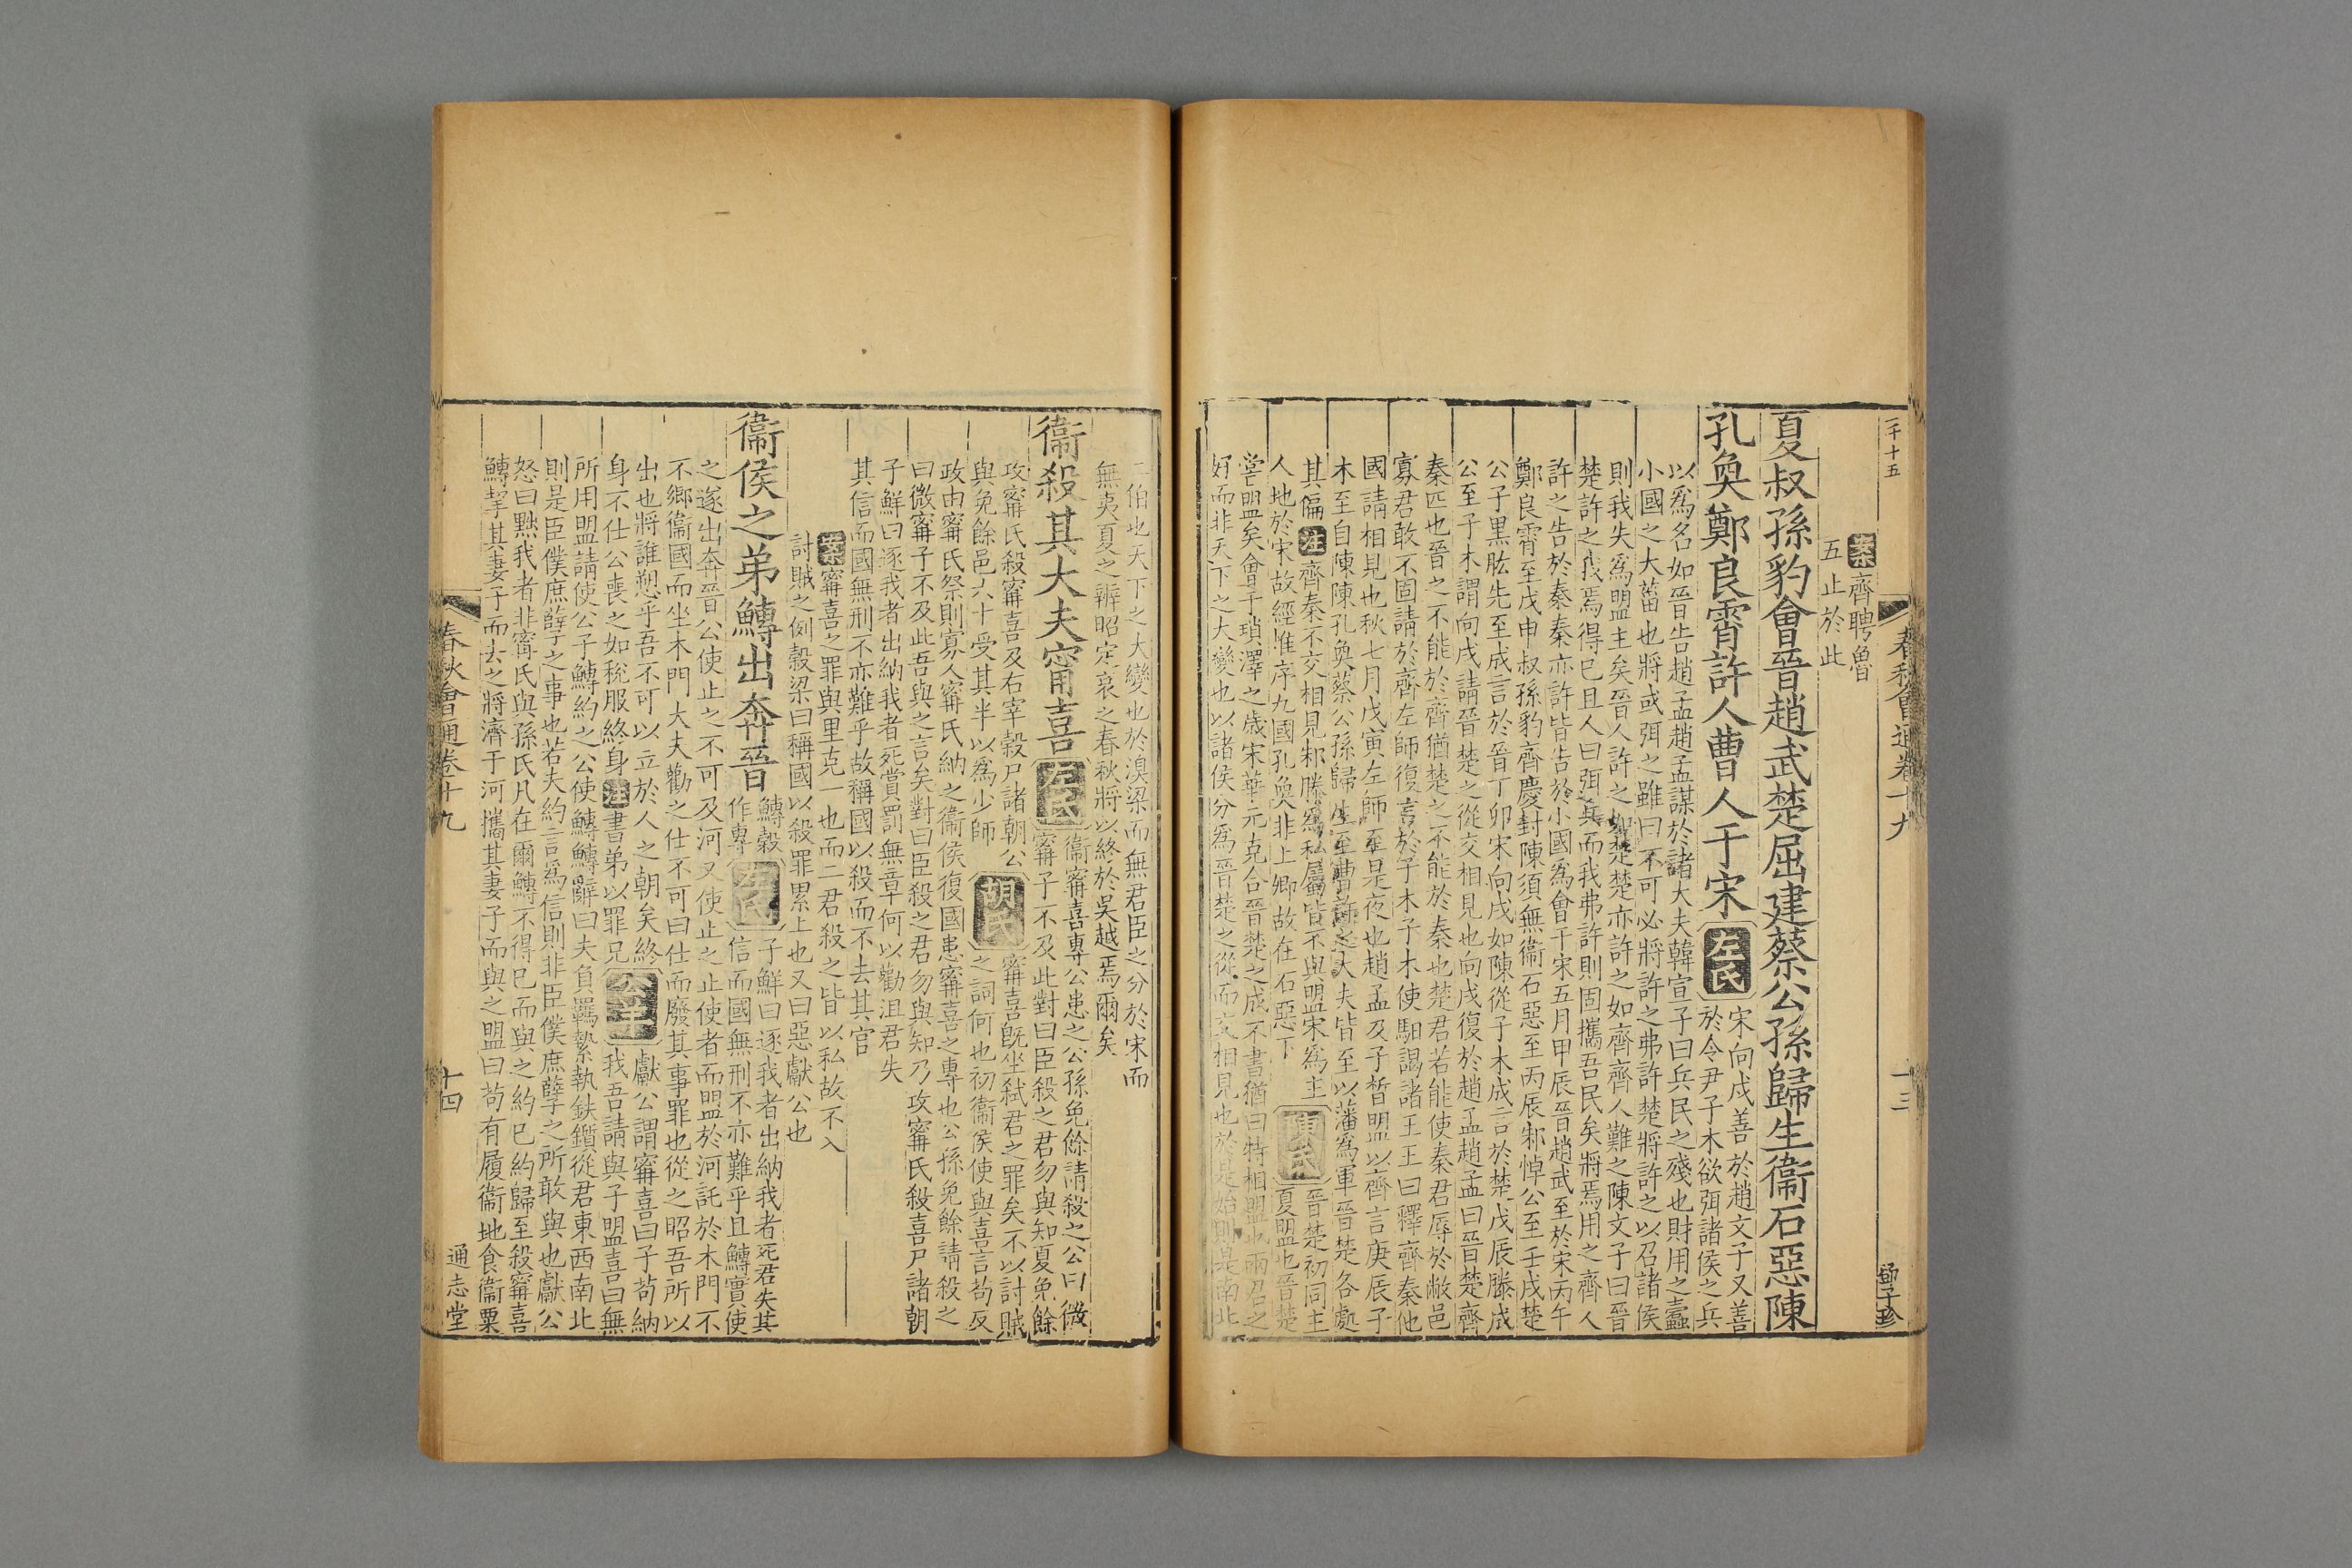 二十五
春秋會通卷十九
十三
鄧子珍
案齊聘魯
五止於此
夏叔孫豹會晉趙武楚屈建蔡公孫歸生衞石惡陳
孔奐鄭良霄許人曹人于宋
左氏
宋向戌善於趙文子又善
於令尹子木欲弭諸侯之兵
以爲名如晉告趙孟趙孟謀於諸大夫韓宣子曰兵民之殘也財用之蠹
小國之大菑也將或弭之雖曰不可必將許之弗許楚將許之以召諸侯
則我失爲盟主矣晉人許之如楚楚亦許之如齊齊人難之陳文子曰晉
楚許之我焉得已且人曰弭兵而我弗許則固攜吾民矣將焉用之齊人
許之告於秦秦亦許皆告於小國爲會于宋五月甲辰晉趙武至於宋丙午
鄭良霄至戊申叔孫豹齊慶封陳須無衞石惡至丙辰邾悼公至壬戌楚
公子黑肱先至成言於晉丁卯宋向戌如陳從子木成言於楚戊辰滕成
公至子木謂向戌請晉楚之從交相見也向戌復於趙孟趙孟曰晉楚齊
秦匹也晉之不能於齊猶楚之不能於秦也楚君若能使秦君辱於敝邑
寡君敢不固請於齊左師復言於子木子木使馹謁諸王王曰釋齊秦他
國請相見也秋七月戊寅左師至是夜也趙孟及子晳盟以齊言庚辰子
木至自陳陳孔奐蔡公孫歸生至曹許之大夫皆至以藩爲軍晉楚各處
其偏注齊秦不交相見邾滕爲私屬皆不與盟宋爲主
人地於宋故經惟序九國孔奐非上卿故在石惡下
陳氏
晉楚初同主
夏盟也晉楚
嘗盟矣會于瑣澤之歲宋華元克合晉楚之成不書猶曰特相盟也兩君之
好而非天下之大變也以諸侯分爲晉楚之從而交相見也於是始則是南北
二伯也天下之大變也於溴梁而無君臣之分於宋而
無夷夏之辨昭定哀之春秋將以終於吳越焉爾矣
衞殺其大夫甯喜
左氏
衞甯喜專公患之公孫免餘請殺之公曰微
甯子不及此對曰臣殺之君勿與知夏免餘
攻甯氏殺甯喜及右宰穀尸諸朝公
與免餘邑六十受其半以爲少師
胡氏
甯喜旣坐弒君之罪矣不以討賊
之詞何也初衞侯使與喜言苟反
政由甯氏祭則寡人甯氏納之衞侯復國患甯喜之專也公孫免餘請殺之
曰微甯子不及此吾與之言矣對曰臣殺之君勿與知乃攻甯氏殺喜尸諸朝
子鮮曰逐我者出納我者死賞罰無章何以勸沮君失
其信而國無刑不亦難乎故稱國以殺而不去其官
案甯喜之罪與里克一也而二君殺之皆以私故不入
討賊之例穀梁曰稱國以殺罪累上也又曰惡獻公也
衞侯之弟鱄出奔晉
鱄穀
作專
左氏
子鮮曰逐我者出納我者死君失其
信而國無刑不亦難乎且鱄實使
之遂出奔晉公使止之不可及河又使止之止使者而盟於河託於木門不
不鄉衞國而坐木門大夫勸之仕不可曰仕而廢其事罪也從之昭吾所以
出也將誰愬乎吾不可以立於人之朝矣終
身不仕公喪之如稅服終身注書弟以罪兄
公羊
獻公謂甯喜曰子苟納
我吾請與子盟喜曰無
所用盟請使公子鱄約之公使鱄鱄辭曰夫負羈縶執鈇鑕從君東西南北
則是臣僕庶孽之事也若夫約言爲信則非臣僕庶孽之所敢與也獻公
怒曰黜我者非甯氏與孫氏凡在爾鱄不得已而與之約已約歸至殺甯喜
鱄挈其妻子而去之將濟于河攜其妻子而與之盟曰苟有履衞地食衞粟
春秋會通卷十九
十四
通志堂